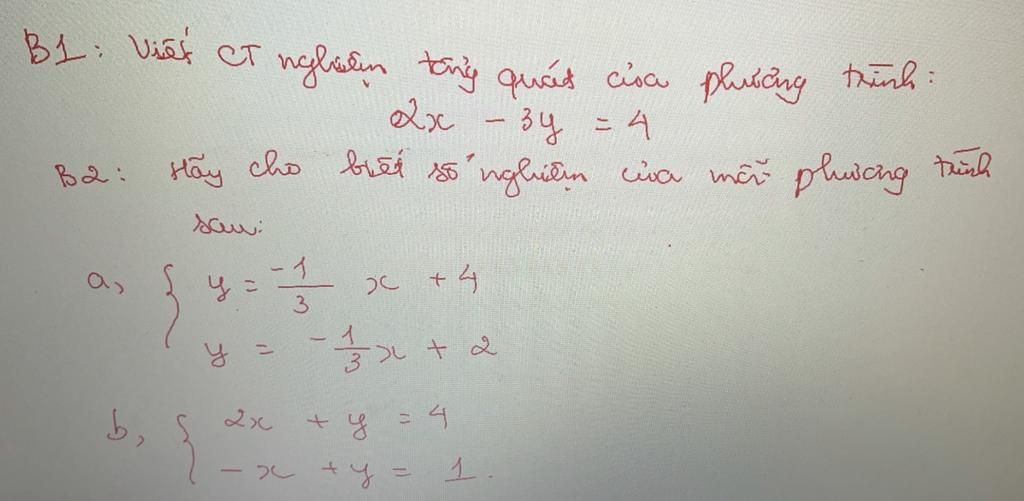 B1: Viết CT nghiệm tổng quát của phương trình:
2x - 3y = 4
B2: Hãy cho biết số nghiệm của mỗi phương trình
sau:
a, { y = -1/3 x + 4
y = -1/3 x + 2
b, { 2x + y = 4
-x + y = 1.